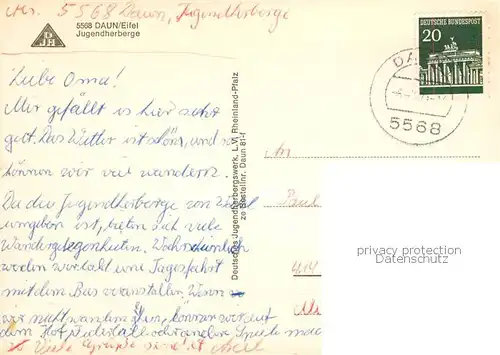 5568 Daun, Jugendherberge
5568 DAUN/Eifel
Jugendherberge
DEUTSCHE BUNDESPOST
20
5568
Liebe Oma!
Mir gefällt es hier sehr
gut. Das Wetter ist schön, und
können wir viel wandern.
Da die Jugendherberge von
umgeben ist, bieten sich viele
Wandergelegenheiten. Wahrscheinlich
werden wir bald eine Tagesfahrt
mit dem Bus veranstalten. Wenn
wir nicht wandern können wir auf
dem Hof oder andere Spiele
Viele Grüße
Deutsches Jugendherbergswerk, L.V. Rheinland-Pfalz
ze Bestellnr. Daun 81-f
An
Paul
414
privacy protection
Datenschutz